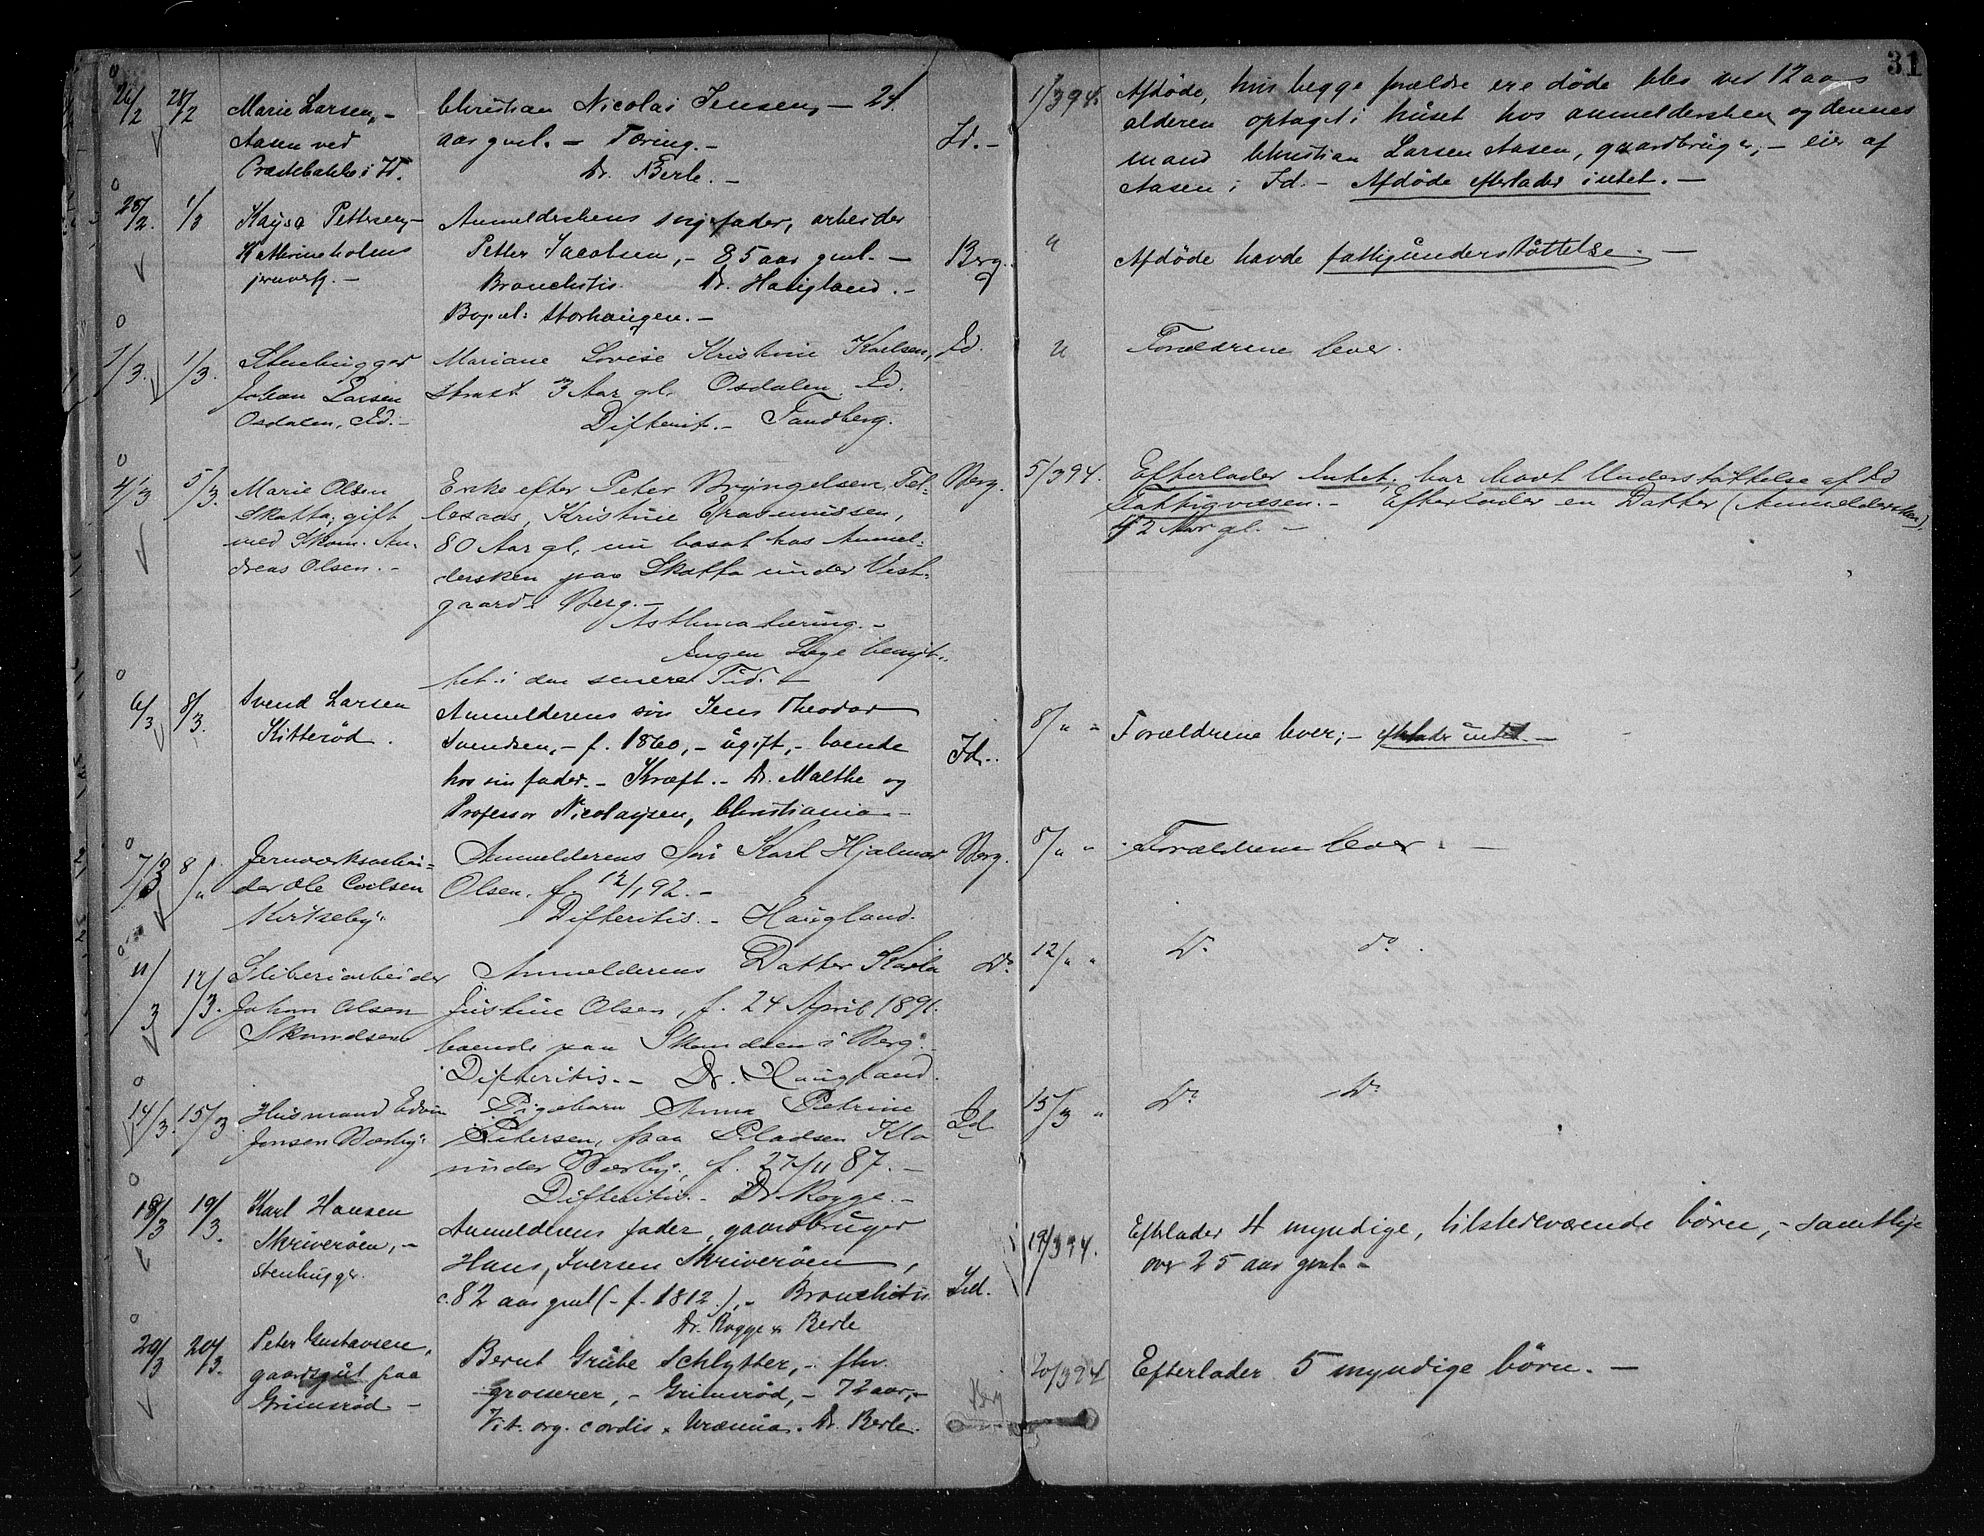 31
26/2 28/2 Marie Larsen, – Christian Nicolai Jensen, – 24
Aasen ved aar gml. – Tæring. – Id. –
Præstebakke i Id. Dr. Berle. –
1/3 94. Afdøde, hvis begge forældre ere døde blev ved 12 aars
alderen optaget i huset hos anmeldersken og dennes
mand Christian Larsen Aasen, gaardbruger, – eier af
Aasen i Id. – Afdøde efterlader intet. –
28/2. 1/3 Kaysa Pettersen, – Anmelderskens svigefader, arbeider
Kathrineholms Petter Jacobsen, – 85 aar gml. – Berg.
jernverk. – Bronchitis. Dr. Haugland. –
Bopæl: Storhaugen. –
" Afdøde havde fattigunderstøttelse. –
1/3. 1/3. Stenhugger Mariane Lovise Kristine Karlsen, Id.
Johan Larsen straxt 3 Aar gl. Osdalen, Id.
Osdalen, Id. – Difterit. – Tandberg.
" Forældrene lever.
4/3 5/3. Marie Olsen Enke efter Peter Bryngelsen, Tel- Berg.
Skatta, gift lesaas, Kristine Erasmussen,
med Skom. An- 80 Aar gl., nu bosat hos Anmel-
dreas Olsen. – dersken paa Skatta under Vest-
gaard i Berg. –
Asthma tæring. –
Ingen Læge benyt-
tet i den senere Tid. –
5/3 94. Efterlader Intet; har havt Understøttelse af Id
Fattigvæsen. – Efterlader en Datter (Anmeldersken)
42 Aar gl. –
6/3 8/3. Svend Larsen Anmelderens søn Jens Theodor
Kitterød. Svendsen, – f. 1860, – ugift, – boende Id. –
hos sin fader. – Kræft. – Dr. Malthe og
Professor Nicolaysen, Christiania –
8/" " Forældrene lever; – efterlader intet –
7/3 8/" Jernværksarbei- Anmelderens Søn Karl Hjalmar Berg.
der Ole Carlsen Olsen, f. 12/1 92. –
Kirkeby. Difteritis. – Haugland.
8/" " Forældrene lever. –
11/3 12/3. Sliberiarbeider Anmelderens Datter Karla Do
Johan Olsen Justine Olsen, f. 24 April 1891.
boende paa i Berg. –
Difteritis. – Dr. Haugland.
12/" " Do do.
14/3. 15/3 Husmand Edvin Pigebarn Anna Petrine Id.
Jensen Bærby. Petersen, fra Pladsen
under Bærby, f. 27/11 87. –
Difteritis. – Dr. Rogge. –
15/3 " Do Do
18/3 19/3. Karl Hansen Anmelderens fader, gaardbruger
Skriverøen, – Hans Iversen Skriverøen,
stenhugger. c. 82 aar gml (– f. 1812.), – Bronchitis Id.
Dr. Rogge & Berle
19/3 94. Efterlader 4 myndige, tilstedeværende børn, – samtlige
over 25 aar gml. –
20/3 20/3. Peter Gustavsen, Bernt Grube Schlytter, – fhv.
gaardsgut paa grosserer, – Grimsrød, – 72 aar, –
Grimsrød – Vit. org. cordis & Uræmia. Dr. Berle. Berg
20/3 94 Efterlader 5 myndige børn. –